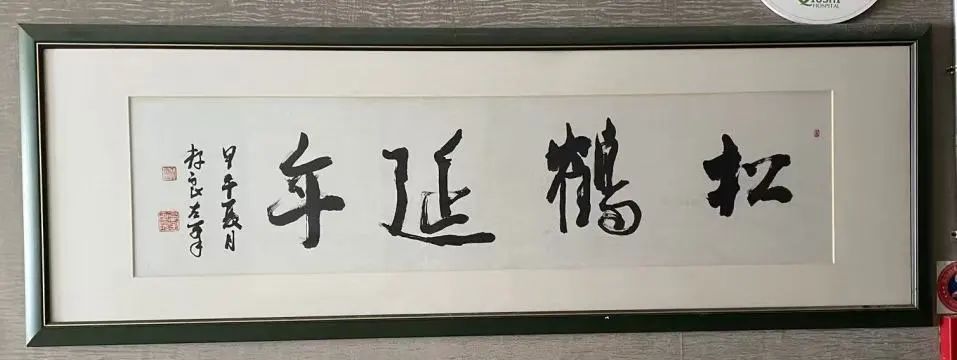 松鹤延年
甲午夏月
存良左笔
HOSPITAL